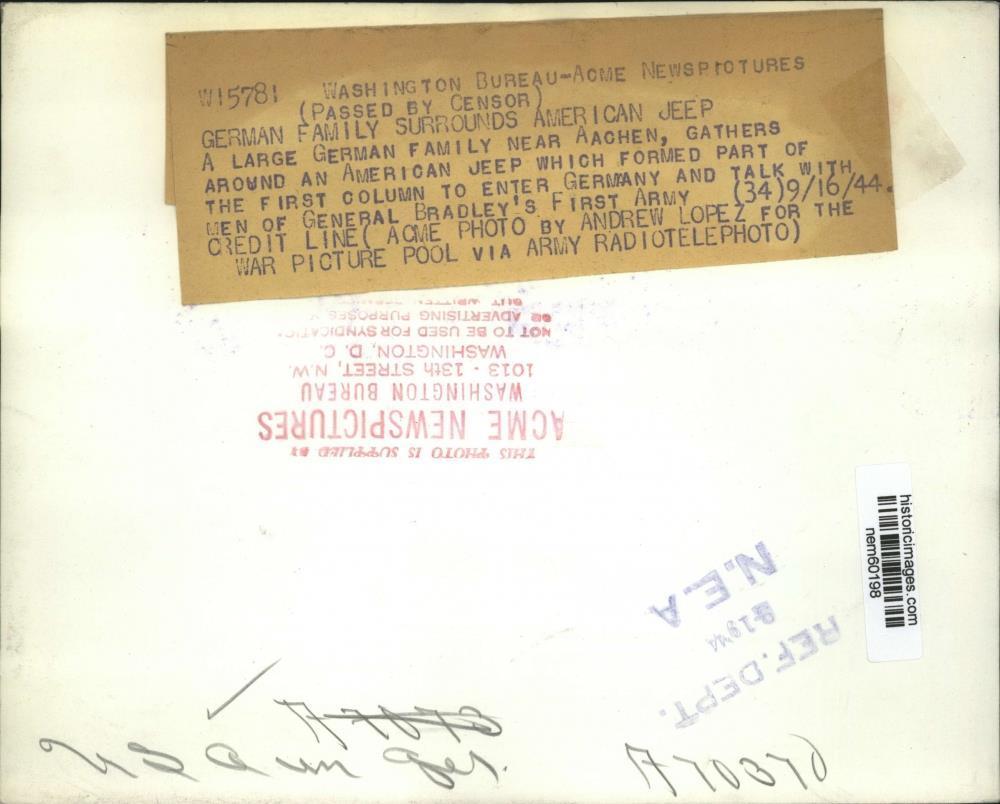 W15781 WASHINGTON BUREAU-ACME NEWSPICTURES
(PASSED BY CENSOR)
GERMAN FAMILY SURROUNDS AMERICAN JEEP
A LARGE GERMAN FAMILY NEAR AACHEN, GATHERS
AROUND AN AMERICAN JEEP WHICH FORMED PART OF
THE FIRST COLUMN TO ENTER GERMANY AND TALK WITH
MEN OF GENERAL BRADLEY'S FIRST ARMY (34)9/16/44.
CREDIT LINE( ACME PHOTO BY ANDREW LOPEZ FOR THE
WAR PICTURE POOL VIA ARMY RADIOTELEPHOTO)
THIS PHOTO IS SUPPLIED BY
ACME NEWSPICTURES
WASHINGTON BUREAU
1013 - 13th STREET, N.W.
WASHINGTON, D. C.
NOT TO BE USED FOR SYNDICATIO
OR ADVERTISING PURPOSES
OUT WRITTEN
historicimages.com
nem60198
REF. DEPT.
N.E.A
A7073
US
A70370